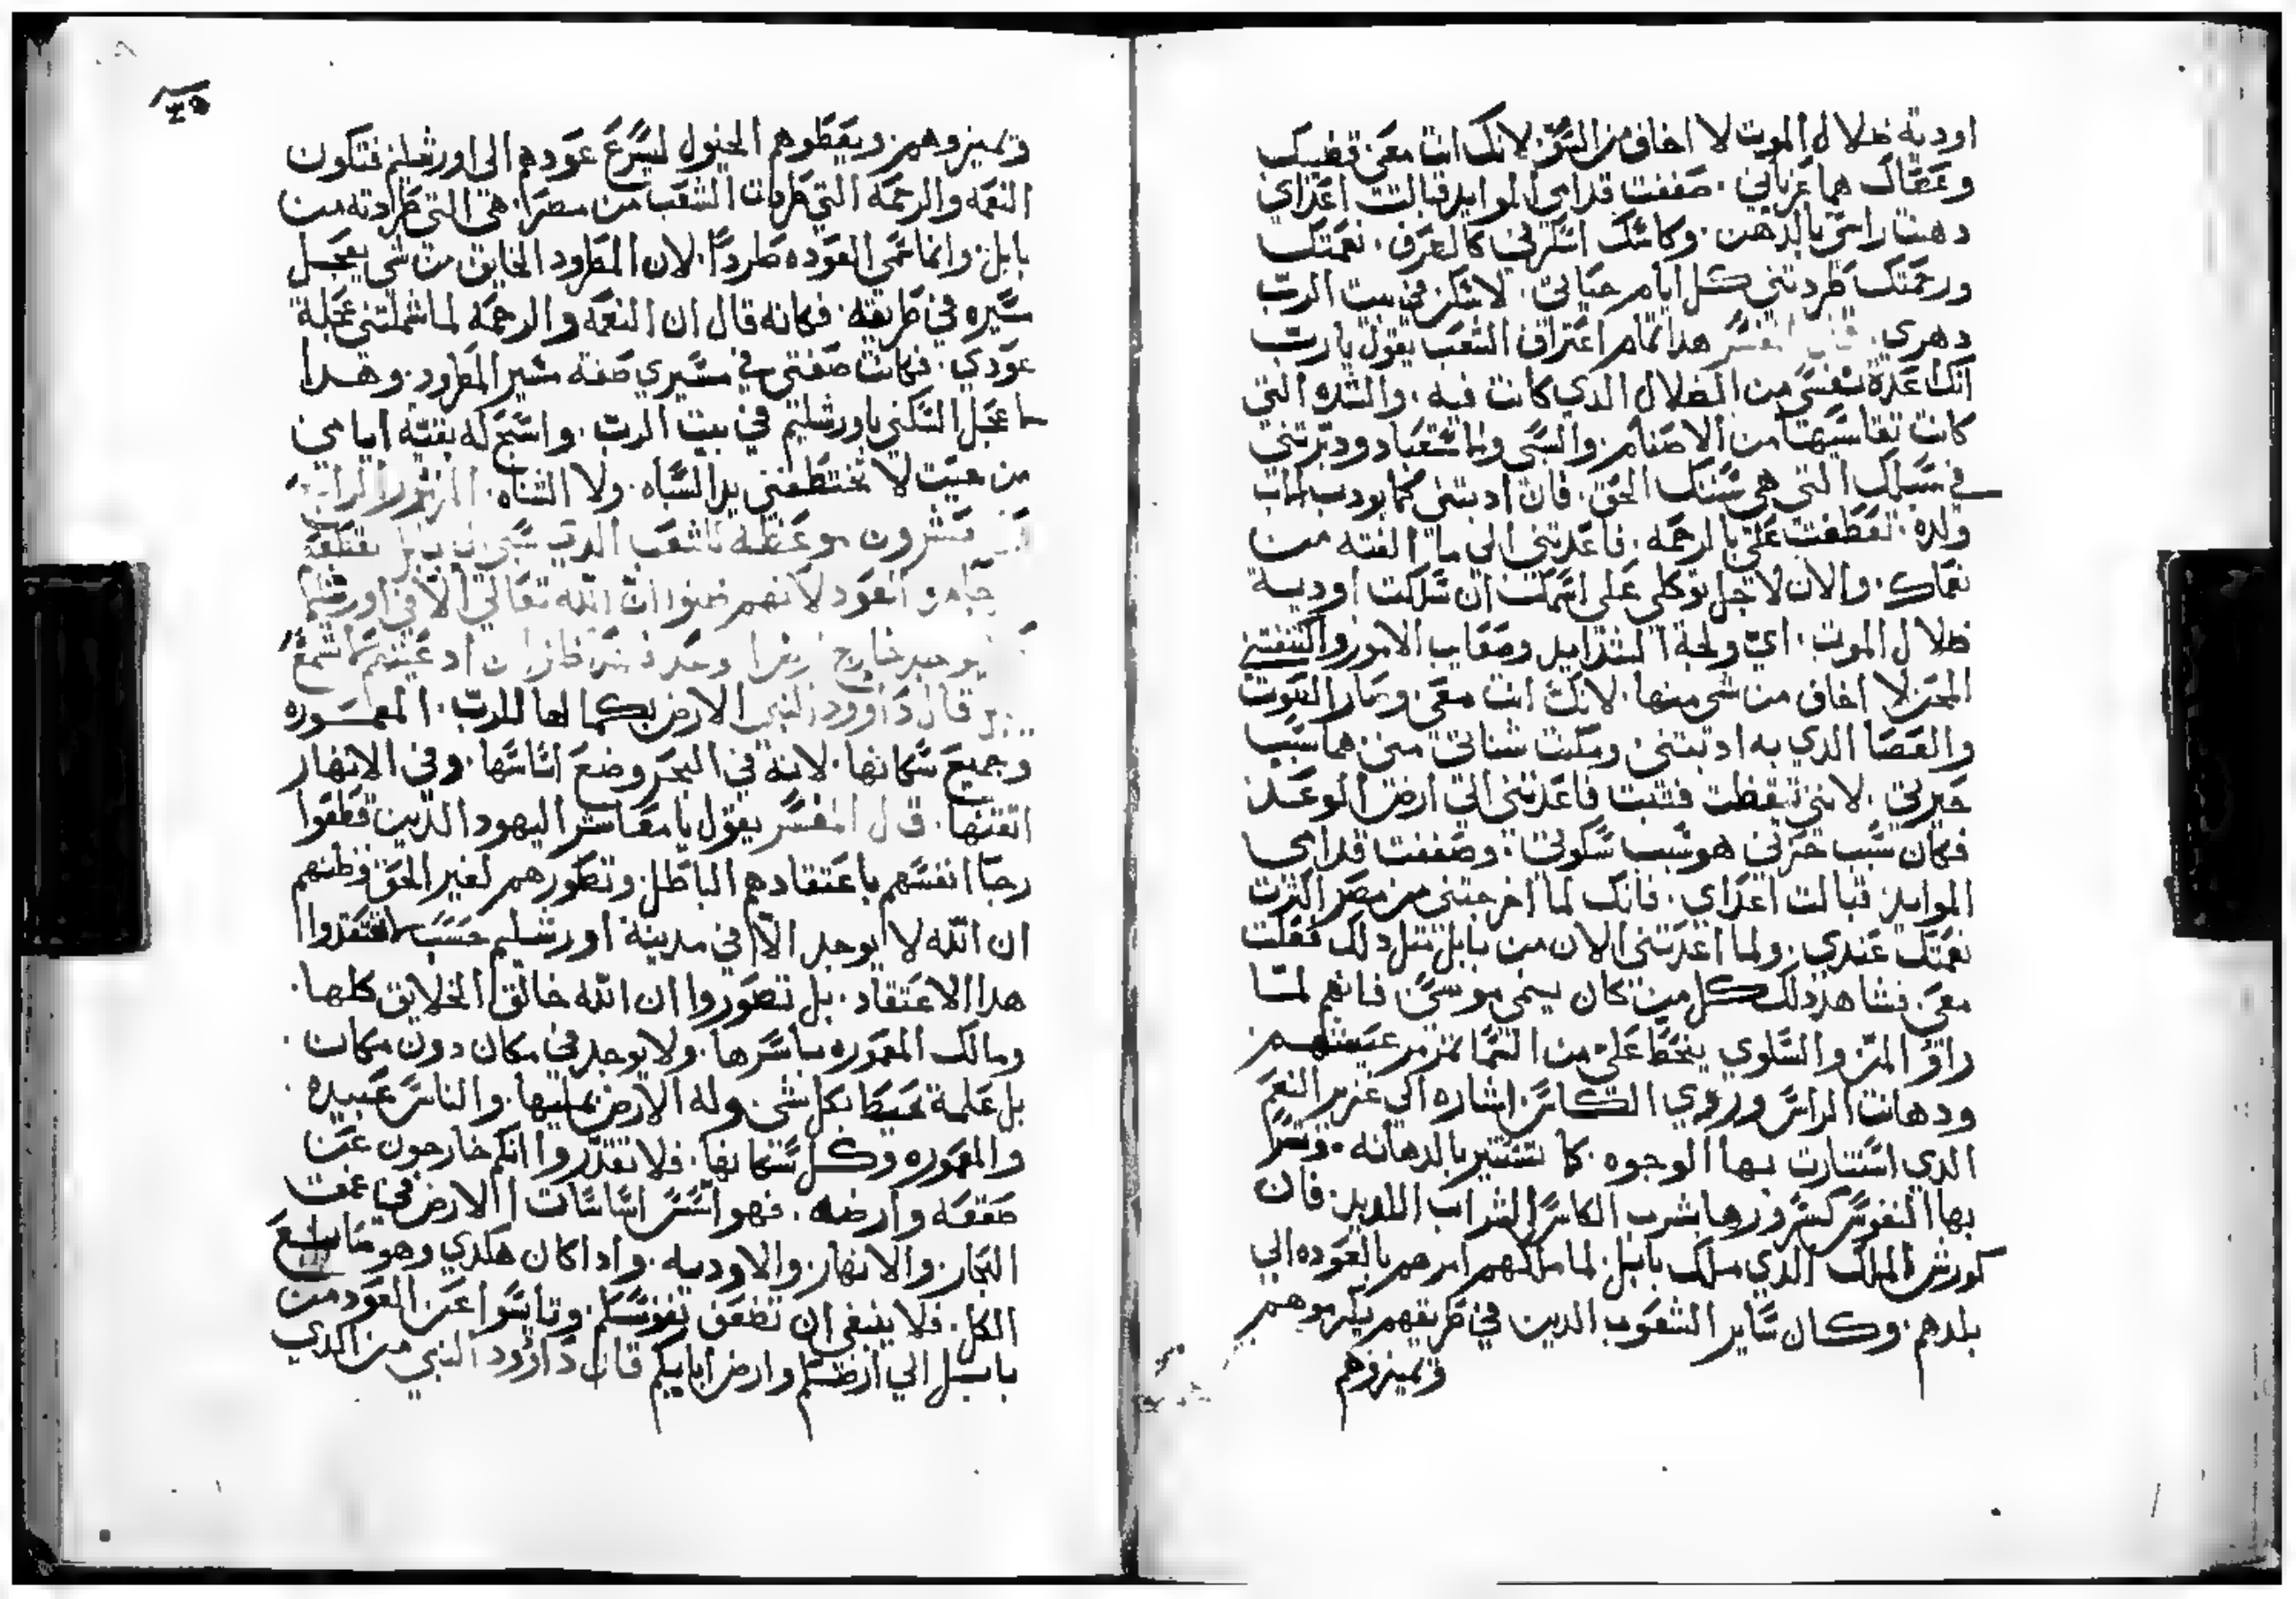 اودية ظلال الموت لا اخاف من الشر لانك انت معى قضيبك
وعصاك هما عزياني. صففت قدامي الموايد قبالت اعداي
دهنت راسي بالدهن. وكاسك اسكرني كالصرف. نعمتك
ورحمتك طردتني كل ايام حياتي. لاسكن في بيت الرب
دهري. قال المفسر هدا تمام اعتراف الشعب يقول يارب
انك اعدة نفسي من الضلال الدي كانت فيه. والشده التي
كانت تقاسيها من الاصنام والسبي والاستعباد ودبرتني
في سبلك التي هي سنتك الحق. فان ادبتني كما يودب الاب
ولده. تعطفت علي بالرحمه. فاعدتني الي ما الفته من
نعماك. والان لاجل توكلي على اسمك ان سلكت اودية
ظلال الموت. اي ولجة الشدايد وصعايب الامور والتفتيز
المحز لا اخاف من شي منها. لانك انت معي وصار القوت
والعصا الدي به ادبتني ومكت شناتي مني هما سبب
خيرتي. لانني تيقظت فتبت فاعدتني الي ارض الوعد
فكان سبب حزني هو سبب سكوني. وصففت قدامي
الموايد قبالت اعداي. فانك لما اخرجتني من مصر اكثرت
نعمتك عندي. ولما اعدتني الان من بابل مثل دلك فعلت
معي فشاهد دلك كل من كان يسمى موسي. فانهم لما
راوا المن والسلوي ينحط علي من السما تمرمر عيشهم
ودهانت الراس وروي الكاس اشاره الي غزير النعم
الدي استنارت بها الوجوه. كما تستنير بالدهانه. وتسر
بها النفوس كسرورها بشرب الكاس الشراب اللديد. فان
كورش الملك الدي ملك بابل. لما ملكهم امرهم بالعوده الي
بلدهم. وكان ساير الشعوب الدين في طريقهم يكرموهم
وتميزوهم
وتميزوهم. ويعطوهم الخيول ليسرع عودهم الي اورشليم فتكون
النعمه والرحمه التي طردت الشعب من مصر. هي التي طردته من
بابل. وانما سمي العوده طردا. لان المطرود الخايف من شي يعجل
سيره في طريقه. فكانه قال ان النعمه والرحمه لما شملتني عجلة
عودي. فكانت صفتي في مسيري صفة مسير المطرود. وهدا
لاعجل السكني باورشليم في بيت الرب. واسبح له بقية ايامي
من حيث لا تختطفني يد السباه. ولا الشناه. المزمور الرابع
والعشرون موعظه للشعب الدي سبي الي بابل
العود لانهم ظنوا ان الله تعالي الا في اورشليم
يوجد خارج
قال داوود النبي الارض بكمالها للرب. المعموره
وجميع سكانها. لانه في البحر وضع اساسها. وفي الانهار
اتقنها. قال المفسر يقول يا معاشر اليهود الدين قطعوا
رجا انفسهم باعتقادهم الباطل. وتطورهم لغير الحق وظنهم
ان الله لا يوجد الا في مدينة اورشليم حسب لاتعتقدوا
هدا الاعتقاد. بل تصوروا ان الله خالق الخلايق كلها.
ومالك المعموره باسرها. ولا يوجد في مكان دون مكان.
بل علمه محيط بكل شي وله الارض بمليها. والناس عبيده.
والمعموره وكل سكانها. فلا تقدروا انكم خارجون عن
صقعه وارضه. فهو اسس اساسات الارض في عمق
البحار. والانهار. والاوديه. وادا كان هكدي وهو
الكل. فلا ينبغي ان تضعف نفوسكم. وتايسوا عن العود من
بابل الي ارضكم وارض ابايكم قال داوود النبي من الدي